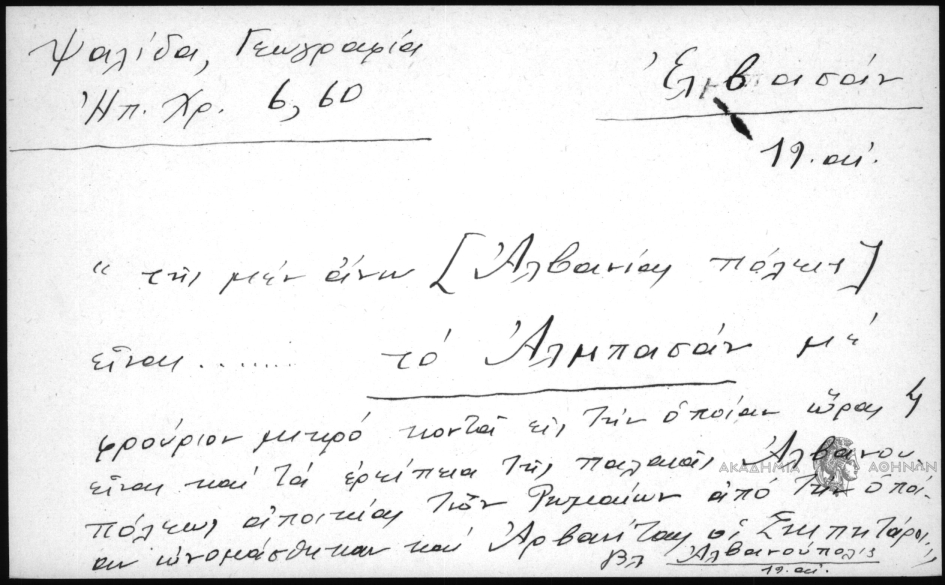 Ψαλίδα, Γεωγραφία
Ἠπ. Χρ. 6, 60
Ἐλβασάν
19. αἰ.
“ τῆς μέν ἄνω [Ἀλβανίας πόλεις]
εἶναι ........ τό Ἀλμπασάν μέ
φρούριον μικρό κοντά εἰς τήν ὁποίαν ὥρας 4
εἶναι καί τά ἐρείπια τῆς παλαιᾶς Ἀλβανου
πόλεως ἀποικίας τῶν Ρωμαίων ἀπό τήν ὁποί-
αν ὠνομάσθηκαν καί Ἀρβανίται οἱ Σκιπητάροι,,
βλ Ἀλβανούπολις
19. αἰ.
ΑΚΑΔΗΜΙΑ ΑΘΗΝΩΝ